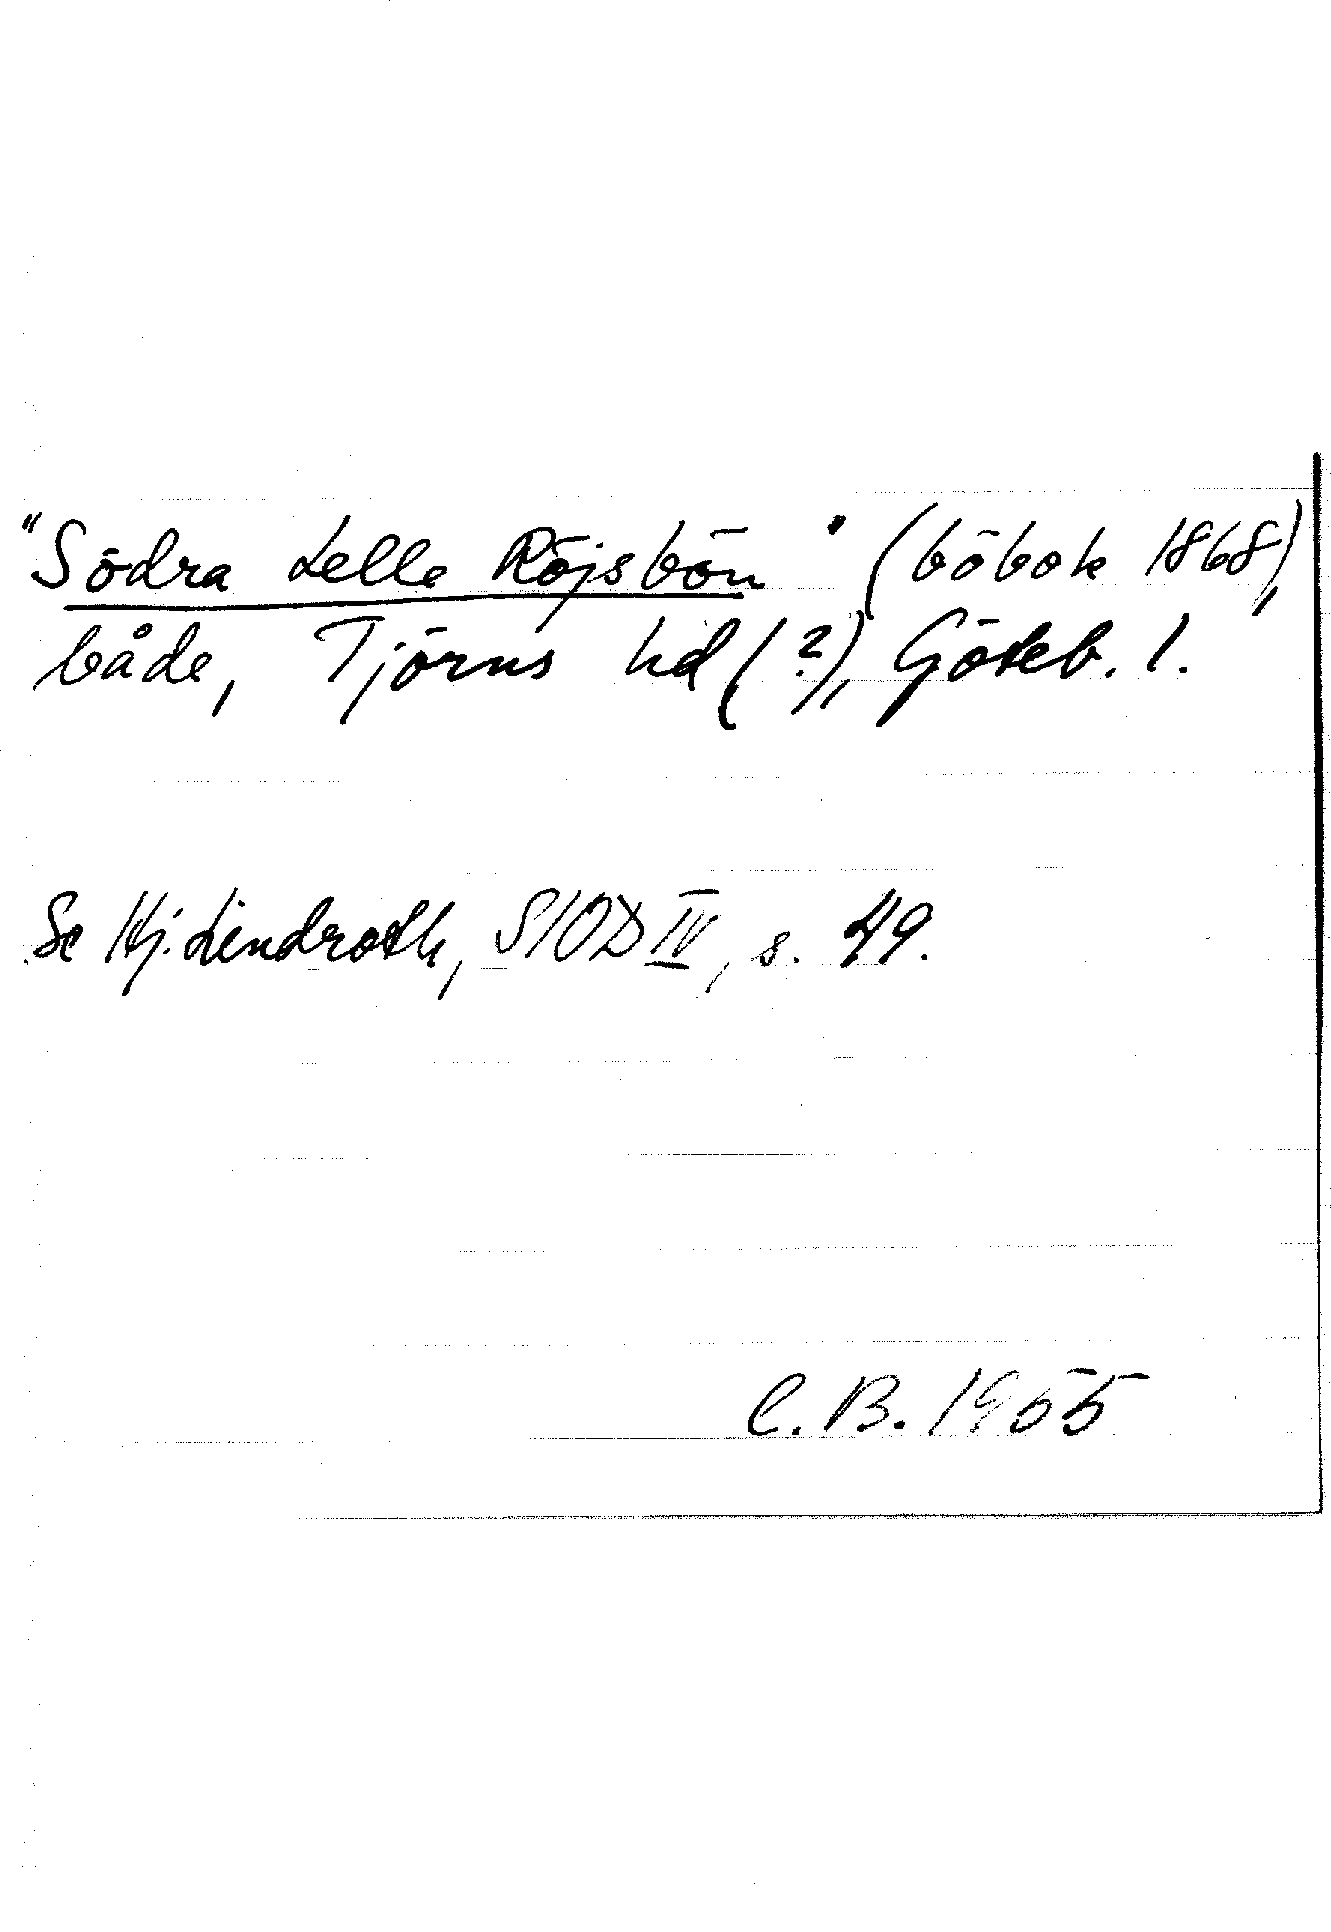 "Södra Lelle Röjsbön" (böbok 1868),
både, Tjörns hd (?), Göteb. l.
Se Hj. Lindroth, SIOD IV, s. 49.
C. B. 1955